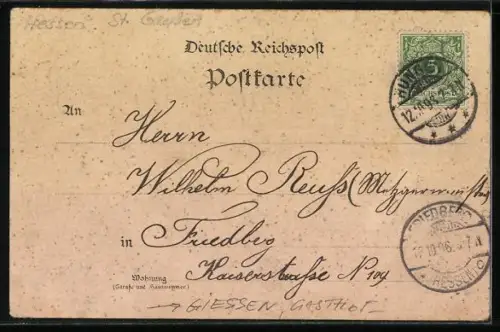 Hessen St. Gießen
Deutsche Reichspost
Postkarte
5
12.10.96.
An Herrn
Wilhelm Reuß (Metzgermeister)
in Friedberg
FRIEDBERG
12.10.96. 6-7.N
HESSEN
Kaiserstraße N 104
Wohnung
(Straße und Hausnummer)
→ GIESSEN, GASTHOF